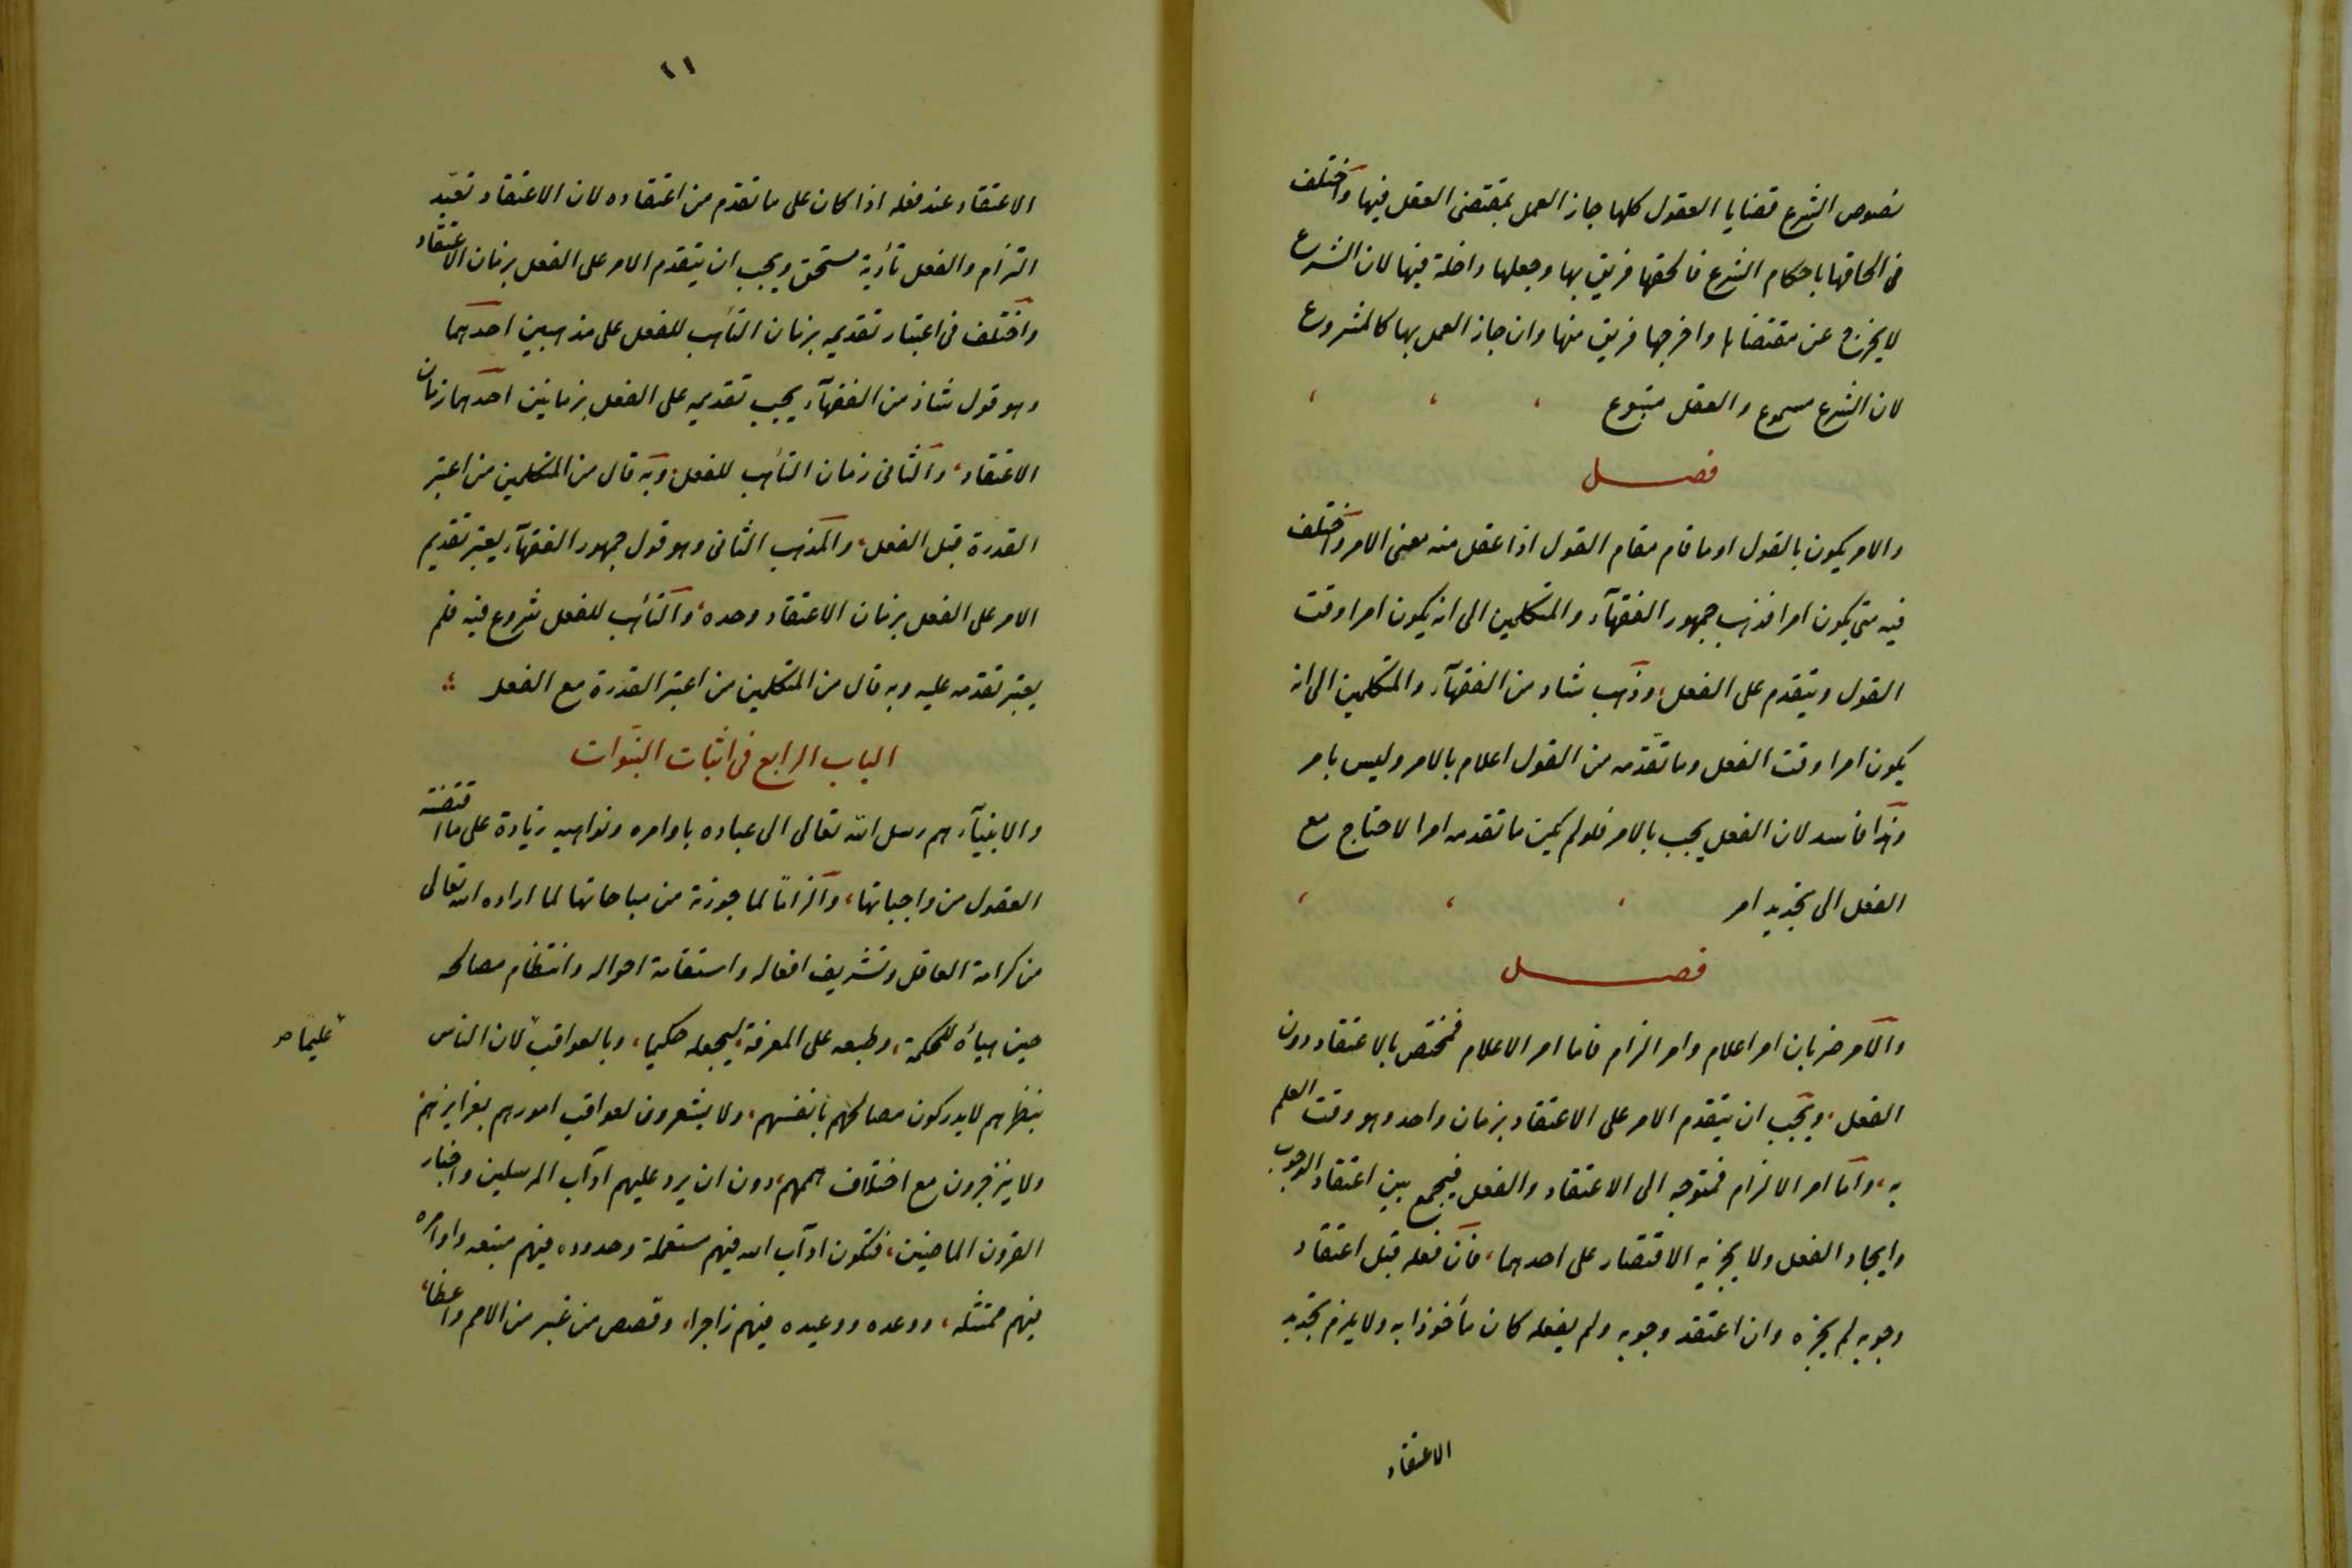 نصوص الشرع قضايا العقول كلها جاز العمل بمقتضى العقل فيها واختلف
فى الحاقها باحكام الشرع فالحقها فريق بها وجعلها داخلة فيها لان الشرع
لا يخرج عن مقتضاها واخرجها فريق منها وان جاز العمل بها كالمشروع
لان الشرع مسموع والعقل متبوع
فصل
والامر يكون بالقول او ما قام مقام القول اذا عقل منه معنى الامر واختلف
فيه متى يكون امرا فذهب جمهور الفقهآء والمتكلمين الى انه يكون امرا وقت
القول ويتقدم على الفعل، وذهب شاذ من الفقهآء والمتكلمين الى انه
يكون امرا وقت الفعل وما تقدّمه من القول اعلام بالامر وليس بامر
وهذا فاسد لان الفعل يجب بالامر فلو لم يكن ما تقدمه امرا لاحتاج مع
الفعل الى تجديد امر
فصل
والامر ضربان امر اعلام وامر الزام فاما امر الاعلام فمختص بالاعتقاد دون
الفعل، ويجب ان يتقدم الامر على الاعتقاد بزمان واحد وهو وقت العلم
به، واما امر الالزام فمتوجه الى الاعتقاد والفعل فيجمع بين اعتقاد الوجوب
وايجاد الفعل ولا يجزيه الاقتصار على احدهما، فان فعله قبل اعتقاد
وجوبه لم يجزه وان اعتقد وجوبه ولم يفعله كان مأخوذا به ولا يلزم تجديد
الاعتقاد
١١
الاعتقاد عند فعله اذا كان على ما تقدم من اعتقاده لان الاعتقاد تعبّد
التزام والفعل تأدية مستحق ويجب ان يتقدم الامر على الفعل بزمان الاعتقاد
واختلف فى اعتبار تقديمه بزمان التأهب للفعل على مذهبين احدهما
وهو قول شاذ من الفقهآء يجب تقديمه على الفعل بزمانين احدهما زمان
الاعتقاد، والثانى زمان التأهب للفعل، وبه قال من المتكلمين من اعتبر
القدرة قبل الفعل، والمذهب الثانى وهو قول جمهور الفقهآء يعتبر تقديم
الامر على الفعل بزمان الاعتقاد وحده، والتأهب للفعل شروع فيه فلم
يعتبر تقدمه عليه وبه قال من المتكلمين من اعتبر القدرة مع الفعل
الباب الرابع فى اثبات النبوّات
والانبيآء هم رسل الله تعالى الى عباده باوامره ونواهيه زيادة على ما اقتضته
العقول من واجباتها، والزامًا لما جوزته من مباحاتها لما اراده الله تعالى
من كرامة العاقل وتشريف افعاله واستقامة احواله وانتظام مصالحه
حين هيأه للحكمة، وطبعه على المعرفة، ليجعله حكيما، وبالعواقب لان الناس
عليما صح
بنظرهم لا يدركون مصالحهم بانفسهم، ولا يشعرون لعواقب امورهم بغرايزهم
ولا ينزجرون مع اختلاف هممهم، دون ان يرد عليهم ادآب المرسلين واخبار
القرون الماضين، فتكون ادآب الله فيهم مستعملة وحدوده فيهم متبعه واوامره
فيهم ممتثله، ووعده ووعيده فيهم زاجرا، وقصص من غبر من الامم واعظا،